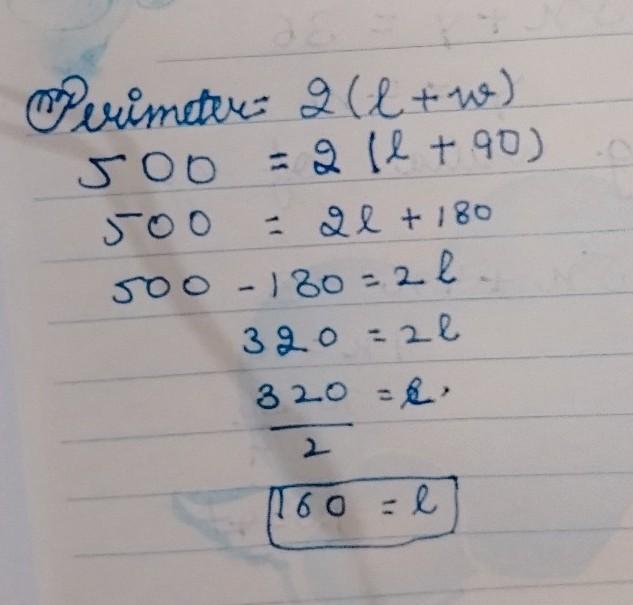 Perimeter = 2(l + w)
500 = 2(l + 90)
500 = 2l + 180
500 - 180 = 2l
320 = 2l
320/2 = l
160 = l